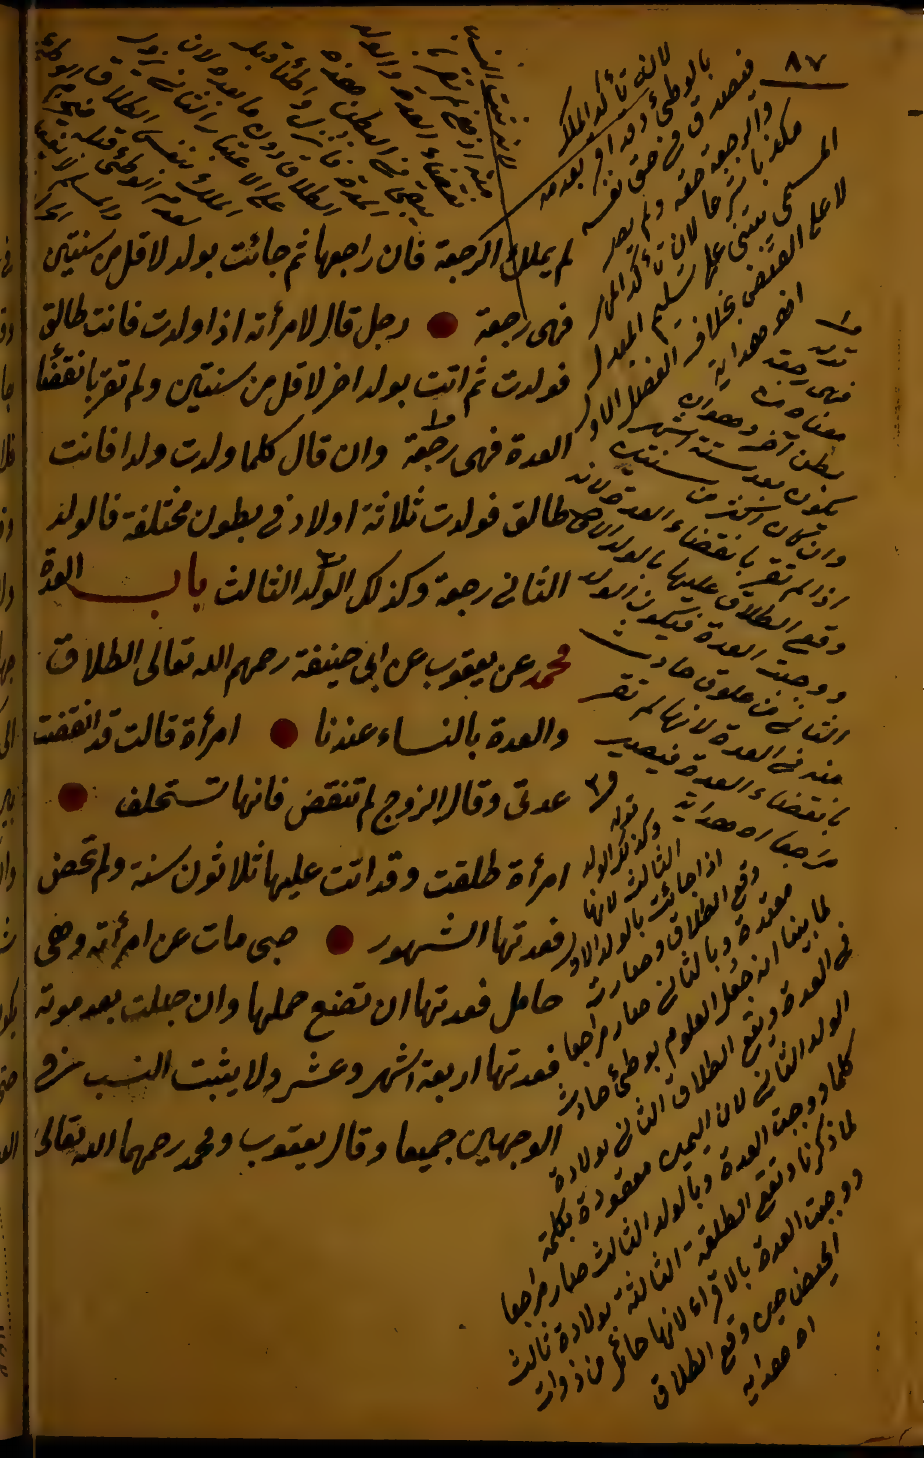 ٨٧
لم يملك الرجعة فان راجعها ثم جائت بولد لاقل من سنتين
فهى رجعة رجل قال لامرأته اذا ولدت فانت طالق
فولدت ثم اتت بولد اخر لاقل من سنتين ولم تقر بانقضاء
العدة فهى رجعة وان قال كلما ولدت ولدا فانت
طالق فولدت ثلاثة اولاد فى بطون مختلفة فالولد
الثانى رجعة وكذلك الولد الثالث باب العدة
محمد عن يعقوب عن ابى حنيفة رحمهم الله تعالى الطلاق
والعدة بالنساء عندنا امرأة قالت قد انقضت
عدتى وقال الزوج لم تنقض فانها تستحلف
امرأة طلقت وقد اتت عليها ثلاثون سنة ولم تحض
فعدتها الشهور صبى مات عن امرأته وهى
حامل فعدتها ان تضع حملها وان حبلت بعد موته
فعدتها اربعة اشهر وعشر ولا يثبت النسب فى
الوجهين جميعا وقال يعقوب ومحمد رحمهما الله تعالى
لانه تأكد الملك
بالوطئ وقد اقر بعدمه
فيصدق فى حق نفسه
والرجعة حقه ولم يصر
مكذبا شرعا لان تأكد المهر
المسمى يبتنى على تسليم المبدل
لا على القبض بخلاف الفصل الاول
اهـ هداية
قوله
فهى رجعة
معناه من
بطن آخر وهو ان
يكون بعد ستة اشهر
وان كان اكثر من سنتين
اذا لم تقر بانقضاء العدة لانه
وقع الطلاق عليها بالولد الاول
ووجبت العدة فيكون الولد
الثانى من علوق حادث
منه فى العدة لانها لم تقر
بانقضاء العدة فيصير
مراجعا اهـ هداية
قوله
وكذلك الولد
الثالث لانها
اذا جائت بالولد الاول
وقع الطلاق وصارت
معتدة وبالثانى صار مراجعا
لما بينا انه يجعل العلوق بوطئ حادث
فى العدة ويقع الطلاق الثانى بولادة
الولد الثانى لان اليمين معقودة بكلمة
كلما ووجبت العدة وبالولد الثالث صار مراجعا
لما ذكرنا وتقع الطلقة الثالثة بولادة ثالث
ووجبت العدة بالاقراء لانها حائل من ذوات
الحيض حين وقع الطلاق
اهـ هداية